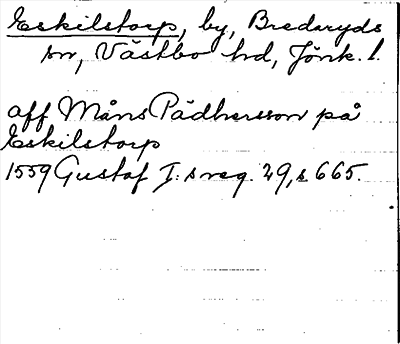 Eskilstorp, by, Bredaryds
sn, Västbo hd, Jönk. l.
aff Måns Pädhersson på
Eskilstorp
1559 Gustaf I:s reg. 29, s 665.